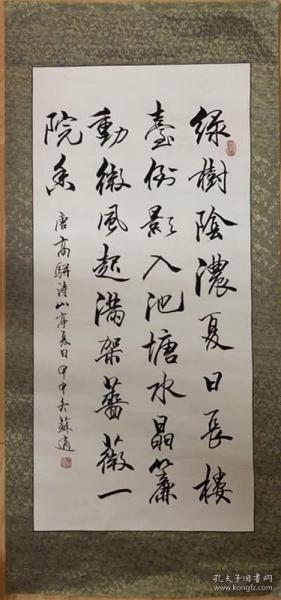 綠樹陰濃夏日長樓
臺倒影入池塘水晶簾
動微風起滿架薔薇一
院香
唐高駢詩山亭夏日甲申冬蘇適
孔夫子旧书网